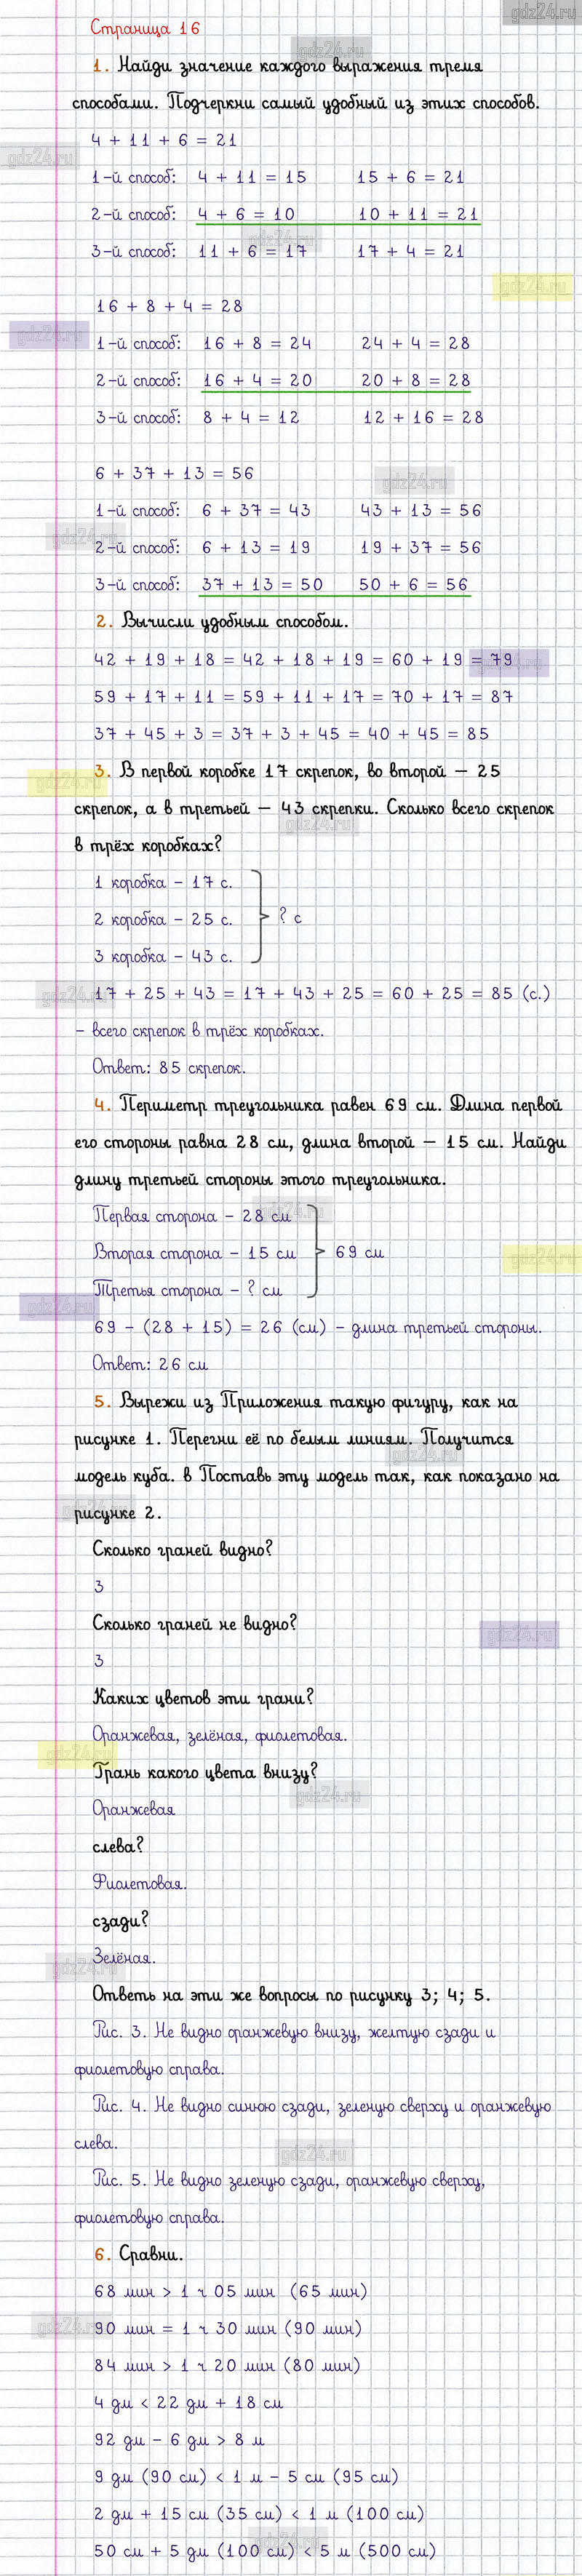 gdz24.ru
Страница 16
1. Найди значение каждого выражения тремя
способами. Подчеркни самый удобный из этих способов.
4 + 11 + 6 = 21
1-й способ: 4 + 11 = 15 15 + 6 = 21
2-й способ: 4 + 6 = 10 10 + 11 = 21
3-й способ: 11 + 6 = 17 17 + 4 = 21
16 + 8 + 4 = 28
1-й способ: 16 + 8 = 24 24 + 4 = 28
2-й способ: 16 + 4 = 20 20 + 8 = 28
3-й способ: 8 + 4 = 12 12 + 16 = 28
6 + 37 + 13 = 56
1-й способ: 6 + 37 = 43 43 + 13 = 56
2-й способ: 6 + 13 = 19 19 + 37 = 56
3-й способ: 37 + 13 = 50 50 + 6 = 56
2. Вычисли удобным способом.
42 + 19 + 18 = 42 + 18 + 19 = 60 + 19 = 79
59 + 17 + 11 = 59 + 11 + 17 = 70 + 17 = 87
37 + 45 + 3 = 37 + 3 + 45 = 40 + 45 = 85
3. В первой коробке 17 скрепок, во второй – 25
скрепок, а в третьей – 43 скрепки. Сколько всего скрепок
в трёх коробках?
1 коробка – 17 с.
2 коробка – 25 с. ? с
3 коробка – 43 с.
17 + 25 + 43 = 17 + 43 + 25 = 60 + 25 = 85 (с.)
– всего скрепок в трёх коробках.
Ответ: 85 скрепок.
4. Периметр треугольника равен 69 см. Длина первой
его стороны равна 28 см, длина второй – 15 см. Найди
длину третьей стороны этого треугольника.
Первая сторона – 28 см
Вторая сторона – 15 см 69 см
Третья сторона – ? см
69 – (28 + 15) = 26 (см) – длина третьей стороны.
Ответ: 26 см
5. Вырежи из Приложения такую фигуру, как на
рисунке 1. Перегни её по белым линиям. Получится
модель куба. в Поставь эту модель так, как показано на
рисунке 2.
Сколько граней видно?
3
Сколько граней не видно?
3
Каких цветов эти грани?
Оранжевая, зелёная, фиолетовая.
Грань какого цвета внизу?
Оранжевая
слева?
Фиолетовая.
сзади?
Зелёная.
Ответь на эти же вопросы по рисунку 3; 4; 5.
Рис. 3. Не видно оранжевую внизу, желтую сзади и
фиолетовую справа.
Рис. 4. Не видно синюю сзади, зеленую сверху и оранжевую
слева.
Рис. 5. Не видно зеленую сзади, оранжевую сверху,
фиолетовую справа.
6. Сравни.
68 мин > 1 ч 05 мин (65 мин)
90 мин = 1 ч 30 мин (90 мин)
84 мин > 1 ч 20 мин (80 мин)
4 дм < 22 дм + 18 см
92 дм – 6 дм > 8 м
9 дм (90 см) < 1 м – 5 см (95 см)
2 дм + 15 см (35 см) < 1 м (100 см)
50 см + 5 дм (100 см) < 5 м (500 см)